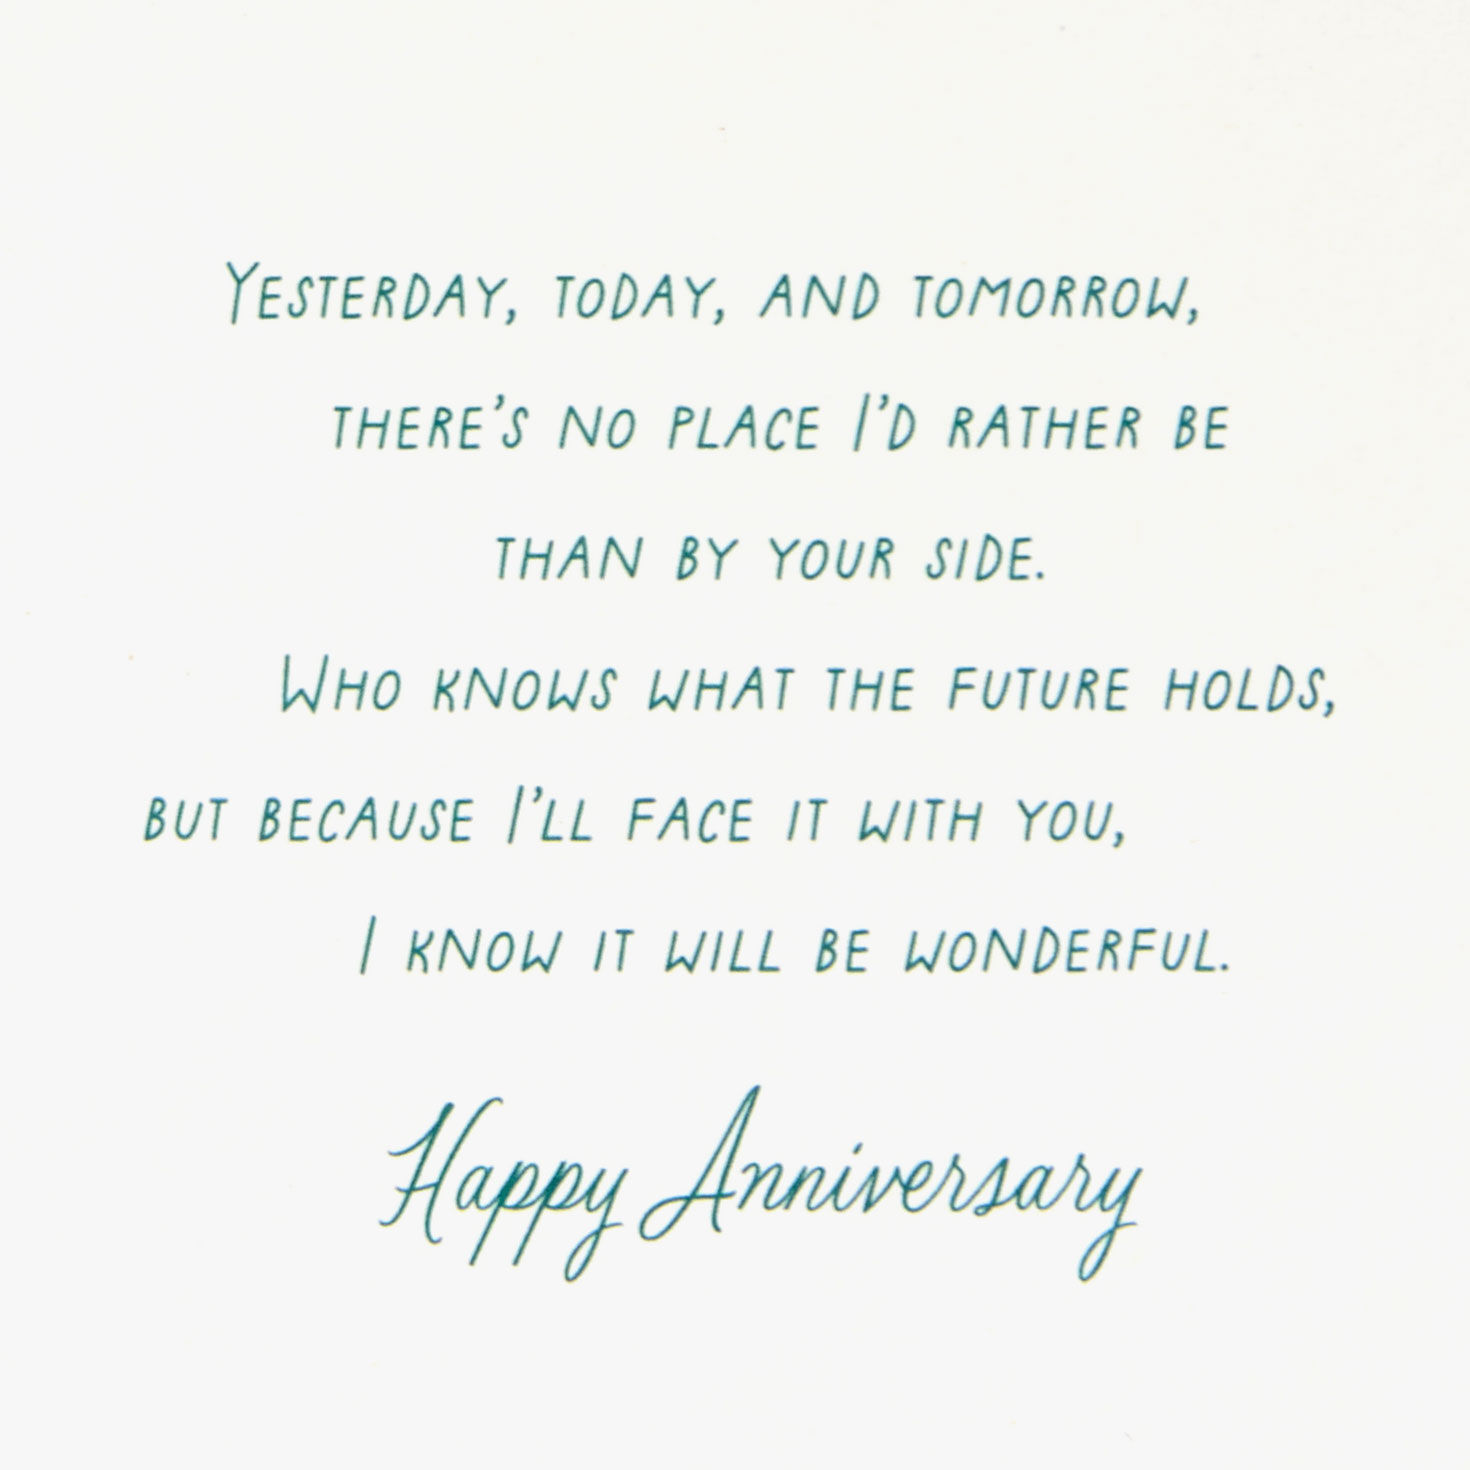 Yesterday, today, and tomorrow,
there's no place I'd rather be
than by your side.
Who knows what the future holds,
but because I'll face it with you,
I know it will be wonderful.
Happy Anniversary